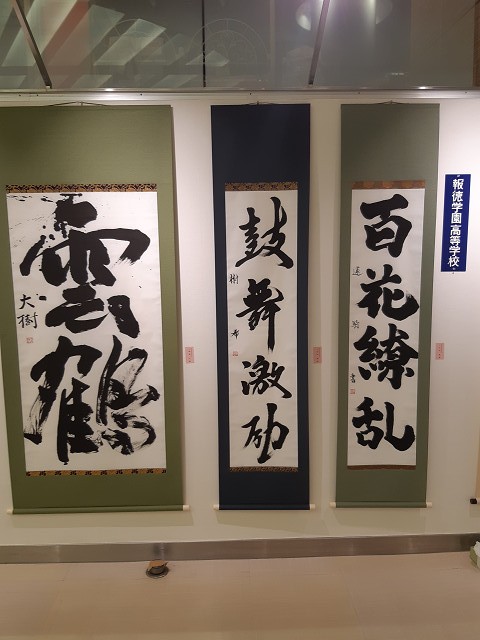 報徳学園高等学校
百花繚乱
鼓舞激励
樹
雲鶴
大樹